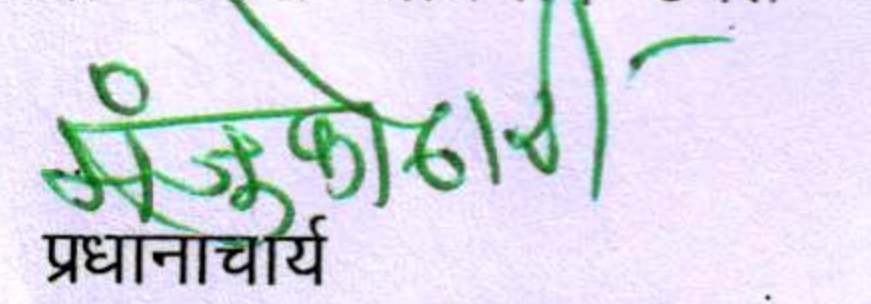 मंजू कोठारी
प्रधानाचार्य